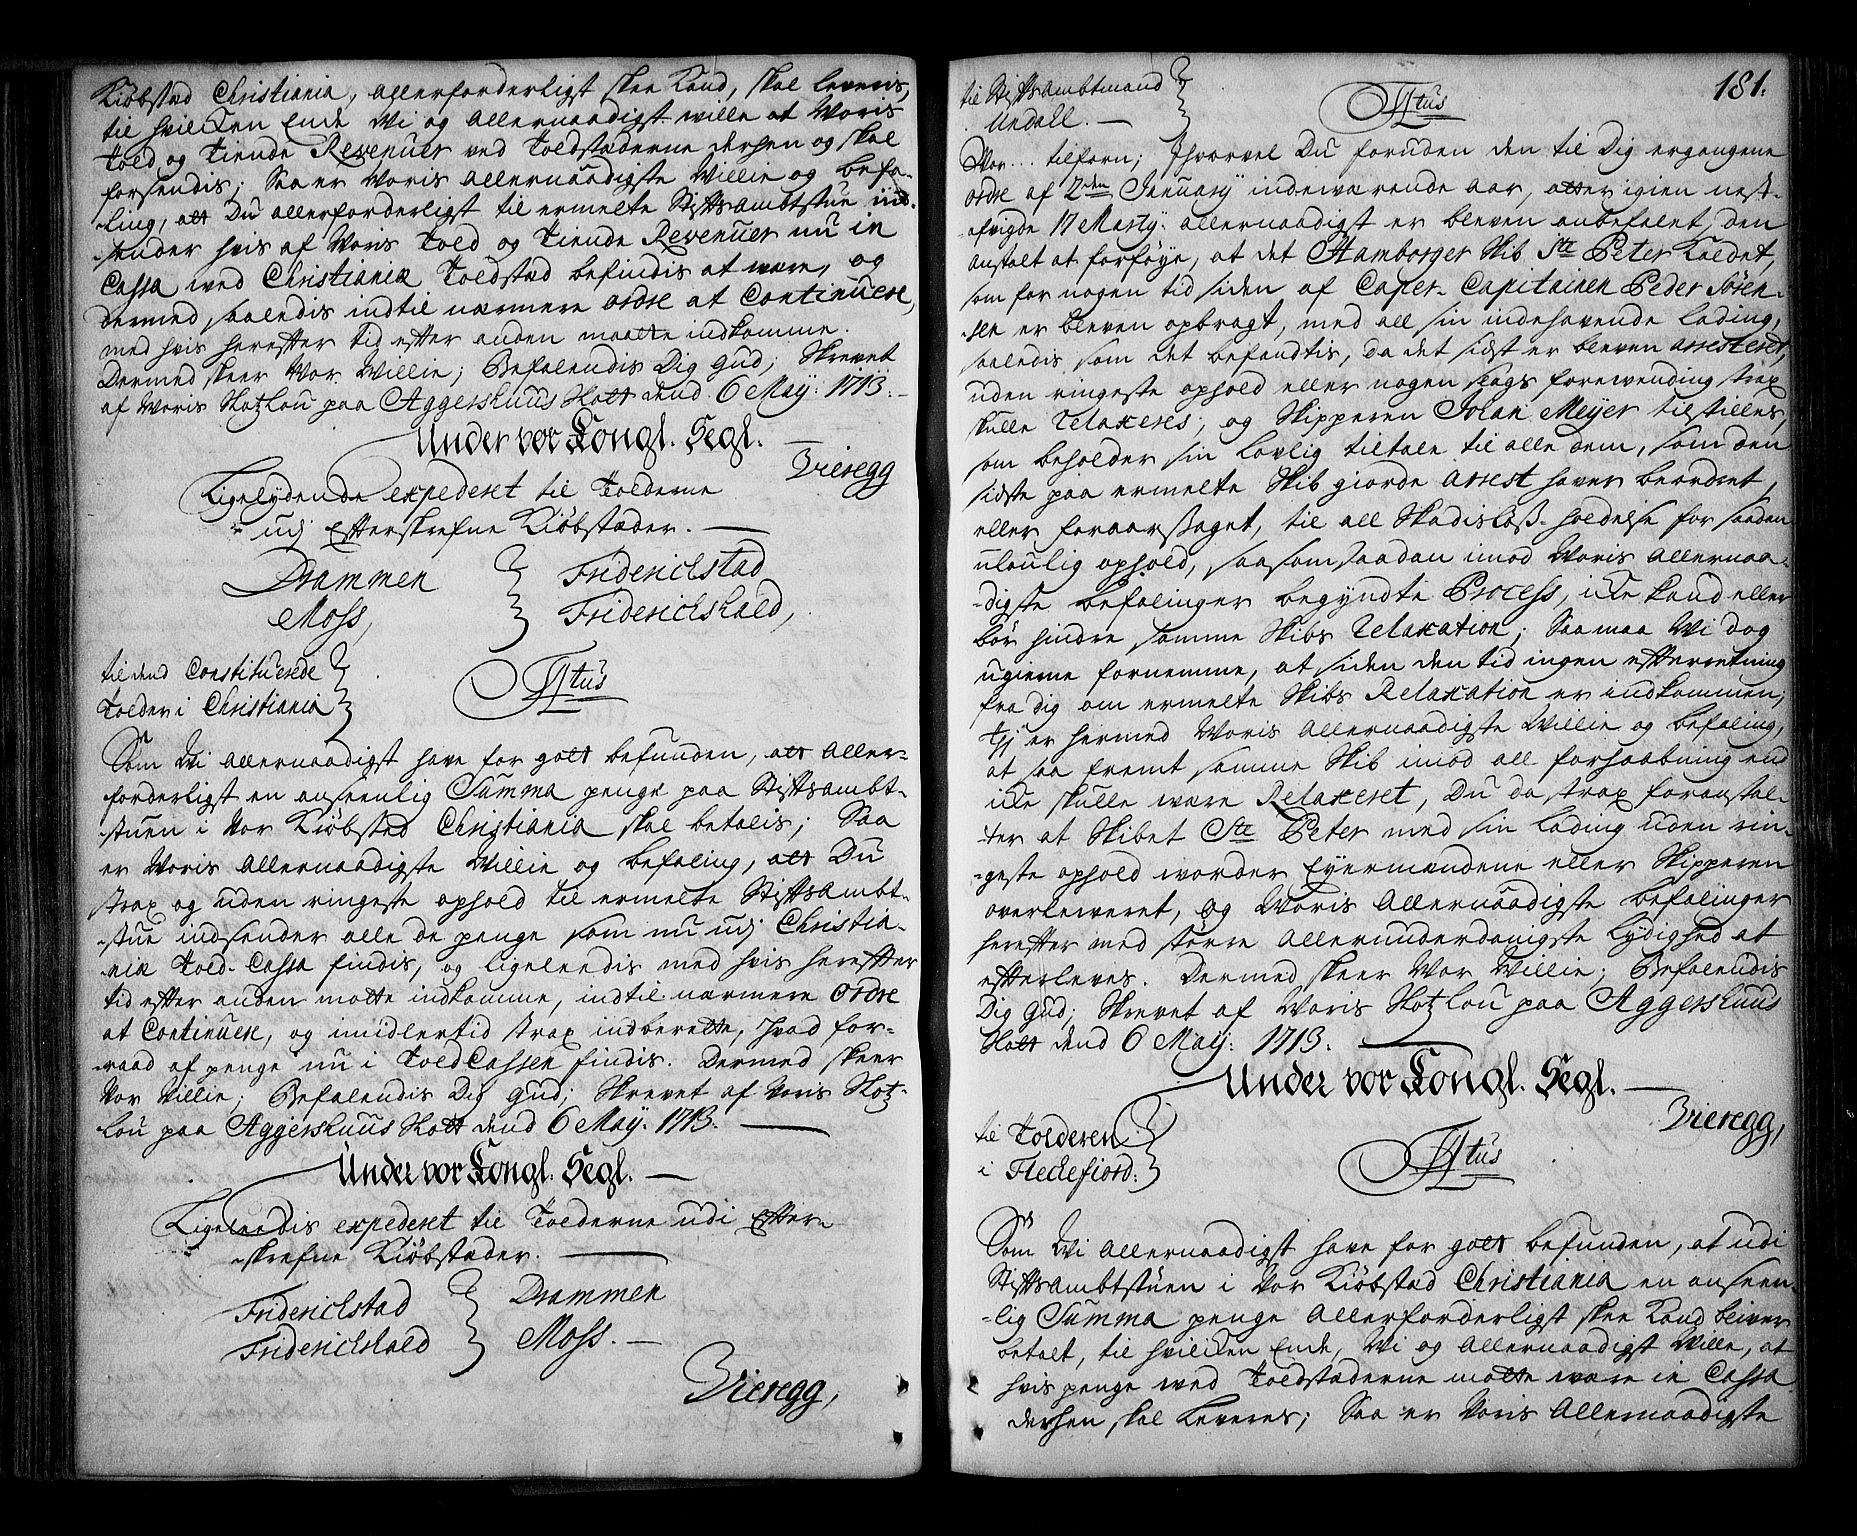 Kiøbstad Christiania, allerforderligst skee Kand, skal leveris,
til hvilcken Ende Wi og allernaadigst wille at Woris
Told og Tiende Revenuer ved Toldstæderne derhen og skal
forsendis; Saa er Woris allernaadigste Willie og befa-
ling, att Du allerforderligst til ermelte Stiftsambtstue ind-
sender hvis af Woris Told og Tiende Revenuer nu in
Cassa wed Christianiæ Toldstæd befindis at wære, og
dermed saaledis indtil nærmere ordre at Continuere,
med hvis herefter tid efter anden maatte indkomme.
Dermed skeer Vor Willie; Befalendis Dig Gud; Skrevet
af Woris Slotzlou paa Aggershuus Slott dend 6 Maÿ: 1713.
Under vor Kongl. Segl.
Vieregg
Ligelydende expederet til Tolderne
udj Efterskrefne Kiøbstæder.
Drammen
Moss,
Friderichstad
Friderichshald,
til dend Constituerede
Tolder i Christiania
Ttus
Som Wi allernaadigst have for gott befunden, att aller-
forderligst en anseenlig Summa penge paa Stiftsambt-
stuen i Vor Kiøbsted Christiania skal betalis; Saa
er Woris allernaadigste Willie og befaling, att Du
strax og uden ringeste ophold til ermelte Stiftsambt-
stue indsender alle de penge som nu udj Christia-
niæ Told-Cassa findis, og ligeleedis med hvis herefter
tid efter anden motte indkomme, indtil nærmere Ordre
at Continuere, og imidlertid strax indberette, hvad for-
raad af penge nu i ToldCassen findis. Dermed skeer
Vor Villie; Befalendis Dig Gud; Skrevet af Voris Slotz-
lou paa Aggershuus Slott dend 6 Maÿ: 1713.
Under vor Kongl. Segl.
Ligeleedis expederet til Tolderne udi Efter-
skrefne Kiøbstæder.
Friderichstad
Friderichshald
Drammen
Moss.
Vieregg,
181.
til Stiftsambtmand
Undall.
Ttus
Vor... tilforn; Ihvorvel Du foruden den til Dig ergangene
ordre af 2den Januarÿ indeværende aar, atter igien nest-
afvigte 17 Martÿ: allernaadigst er bleven anbefalet, den
anstalt at forføye, at det Hamborger Skib Ste Peter Kaldet,
som for nogen tid siden af Caper-Capitainen Peder Sören-
sen er bleven opbragt, med all sin indehavende lading,
saaledis som det befandtis, da det sidst er bleven arresteret,
uden ringeste ophold eller nogen slags forewending strax
skulle relaxeres; og Skipperen Johan Meyer tilstilles,
som beholder sin Lovlig tiltale til alle dem, som den
sidste paa ermelte Skib giorde arrest haver beordret,
eller foraarsaget, til all Skadisløß-holdelse for saadan
ulovlig ophold, saasom saadan imod Woris allernaa-
digste befalinger begyndte Process, icke kand eller
bør hindre samme Skibs relaxation; Saa maa Wi dog
ugierne fornemme, at siden den tid ingen efterretning
fra dig om ermelte Skibs Relaxation er indkommen;
thj er hermed Woris allernaadigste Willie og befaling,
at saa fremt samme Skib imod all forhaabning end
icke skulle wære Relaxeret, Du da strax foranstal-
ter at Skibet Ste Peter med sin Lading uden rin-
geste ophold worder Eyermændene eller Skipperen
overleweret, og Woris Allernaadigste befalinger
herefter med større Allerunderdanigste Lydighed at
efterleves. Dermed skeer Vor Willie; Befalendis
Dig Gud; Skrevet af Woris Slotzlou paa Aggershuus
Slott dend 6 Maÿ: 1713.
Under vor Kongl. Segl.
Vieregg,
til Tolderen
i Fleckefiord:
Ttus
Som Wi Allernaadigst have for gott befunden, at udi
Stiftsambtstuen i Vor Kiøbsted Christiania en anseen-
lig Summa penge Allerforderligst skee Kand bliver
betalt, til hvilcken Ende, Wi og Allernaadigst Wille, at
hvis penge wed Toldstæderne motte være in Cassa
derhen skal Leveres; Saa er Voris Allernaadigste